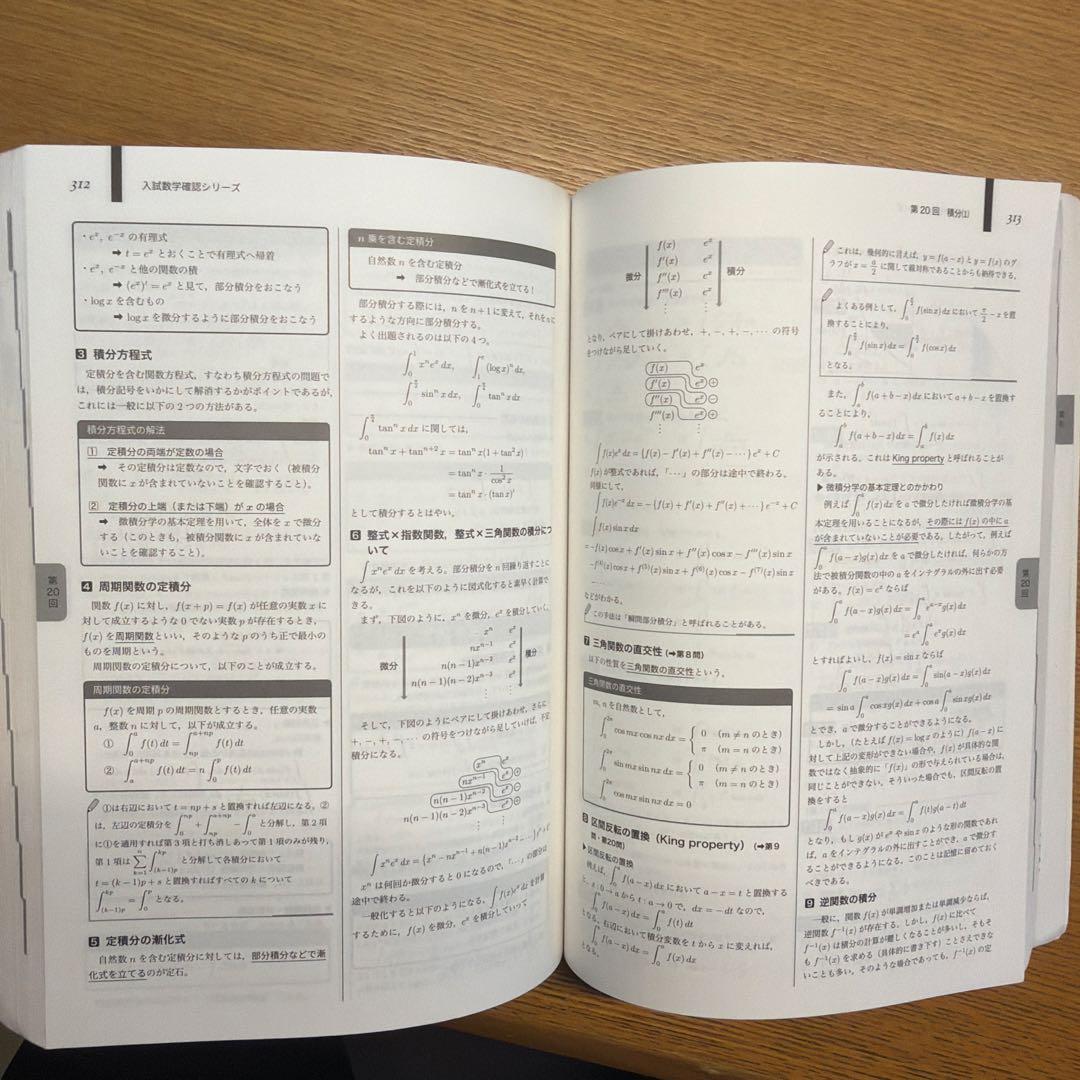 312
入試数学確認シリーズ
・e^x, e^{-x} の有理式
➡ t = e^x とおくことで有理式へ帰着
・e^x, e^{-x} と他の関数の積
➡ (e^x)' = e^x と見て，部分積分をおこなう
・log x を含むもの
➡ log x を微分するように部分積分をおこなう
3 積分方程式
定積分を含む関数方程式，すなわち積分方程式の問題で
は，積分記号をいかにして解消するかがポイントであるが，
これには一般に以下の2つの方法がある。
積分方程式の解法
① 定積分の両端が定数の場合
➡ その定積分は定数なので，文字でおく（被積分
関数に x が含まれていないことを確認すること）。
② 定積分の上端（または下端）が x の場合
➡ 微分積分学の基本定理を用いて，全体を x で微分
する（このときも，被積分関数に x が含まれていな
いことを確認すること）。
4 周期関数の定積分
関数 f(x) に対し，f(x + p) = f(x) が任意の実数 x に
対して成立するような 0 でない実数 p が存在するとき，
f(x) を周期関数といい，そのような p のうち正で最小の
ものを周期という。
周期関数の定積分について，以下のことが成立する。
周期関数の定積分
f(x) を周期 p の周期関数とするとき，任意の実数
a，整数 n に対して，以下が成立する。
① ∫_0^a f(t) dt = ∫_{np}^{a+np} f(t) dt
② ∫_a^{a+np} f(t) dt = n∫_0^p f(t) dt
①は右辺において t = np + s と置換すれば左辺になる。②
は，左辺の定積分を ∫_0^{np} + ∫_{np}^{a+np} − ∫_0^a と分解し，第2項
に①を適用すれば第3項と打ち消しあって第1項のみが残り，
第1項は Σ_{k=1}^n ∫_{(k−1)p}^{kp} と分解して各積分において
t = (k − 1)p + s と置換すればすべての k について
∫_{(k−1)p}^{kp} = ∫_0^p となる。
5 定積分の漸化式
自然数 n を含む定積分に対しては，部分積分などで漸
化式を立てるのが定石。
第20回
n 乗を含む定積分
自然数 n を含む定積分
➡ 部分積分などで漸化式を立てる！
部分積分する際には，n を n+1 に変えて，それを n に
するような方向に部分積分する。
よく出題されるのは以下の4つ。
∫_0^1 x^n e^x dx, ∫_1^e (log x)^n dx,
∫_0^{π/2} sin^n x dx, ∫_0^{π/4} tan^n x dx
∫_0^{π/4} tan^n x dx に関しては，
tan^n x + tan^{n+2} x = tan^n x(1 + tan^2 x)
= tan^n x · 1/cos^2 x
= tan^n x · (tan x)'
として積分するとはやい。
6 整式×指数関数，整式×三角関数の積分につ
いて
∫x^n e^x dx を考える。部分積分を n 回繰り返すことに
なるが，これを以下のように図式化すると素早く計算で
きる。
まず，下図のように，x^n を微分，e^x を積分していく。
微分
x^n e^x
nx^{n−1} e^x
n(n−1)x^{n−2} e^x
n(n−1)(n−2)x^{n−3} e^x
⋮ ⋮
積分
そして，下図のようにペアにして掛けあわせ，さらに
+, −, +, −, ··· の符号をつけながら足していけば，不定
積分になる。
x^n e^x
nx^{n−1} e^x ⊕
n(n−1)x^{n−2} e^x ⊖
n(n−1)(n−2)x^{n−3} e^x ⊕
⋮ ⋮
∫x^n e^x dx = {x^n − nx^{n−1} + n(n−1)x^{n−2} − ···}e^x + C
x^n は何回か微分すると 0 になるので，「...」の部分は
途中で終わる。
一般化すると以下のようになる。∫f(x)e^x dx を計算
するために，f(x) を微分，e^x を積分していって
第20回 積分(1)
313
微分
f(x) e^x
f'(x) e^x
f''(x) e^x
f'''(x) e^x
⋮ ⋮
積分
となり，ペアにして掛けあわせ，+, −, +, −, ··· の符号
をつけながら足していく。
f(x) e^x
f'(x) e^x ⊕
f''(x) e^x ⊖
f'''(x) e^x ⊕
⋮ ⋮
∫f(x)e^x dx = {f(x) − f'(x) + f''(x) − ···} e^x + C
f(x) が整式であれば，「···」の部分は途中で終わる。
同様にして，
∫f(x)e^{−x} dx = −{f(x) + f'(x) + f''(x) + ···} e^{−x} + C
∫f(x) sin x dx
= −f(x) cos x + f'(x) sin x + f''(x) cos x − f'''(x) sin x
− f^{(4)}(x) cos x + f^{(5)}(x) sin x + f^{(6)}(x) cos x − f^{(7)}(x) sin x
······
などがわかる。
この手法は「瞬間部分積分」と呼ばれることがある。
7 三角関数の直交性（➡第8問）
以下の性質を三角関数の直交性という。
三角関数の直交性
m, n を自然数として，
∫_0^{2π} cos mx cos nx dx = { 0 (m ≠ n のとき)
π (m = n のとき)
∫_0^{2π} sin mx sin nx dx = { 0 (m ≠ n のとき)
π (m = n のとき)
∫_0^{2π} cos mx sin nx dx = 0
8 区間反転の置換（King property）（➡第9
問・第20問）
▶区間反転の置換
例えば，∫_0^a f(a−x) dx において a − x = t と置換する
と，t : 0 → a から t : a → 0 で，dx = −dt なので，
∫_0^a f(a − x) dx = ∫_0^a f(t) dt
となる。右辺において積分変数を t から x に変えれば，
∫_0^a f(a − x) dx = ∫_0^a f(x) dx
となる。
これは，幾何的に言えば，y = f(a−x) と y = f(x) のグ
ラフが x = a/2 に関して線対称であることからも納得できる。
よくある例として，∫_0^{π/2} f(sin x) dx において π/2 − x を置
換することにより，
∫_0^{π/2} f(sin x) dx = ∫_0^{π/2} f(cos x) dx
となる。
また，∫_a^b f(a + b − x) dx において a + b − x を置換す
ることにより，
∫_a^b f(a + b − x) dx = ∫_a^b f(x) dx
が示される。これは King property と呼ばれることが
ある。
▶微積分学の基本定理とのかかわり
例えば ∫_0^a f(x) dx を a で微分したければ微積分学の基
本定理を用いることになるが，その際には f(x) の中に a
が含まれていないことが必要である。したがって，例えば
∫_0^a f(a−x)g(x) dx を a で微分したければ，何らかの方
法で被積分関数の中の a をインテグラルの外に出す必要
がある。f(x) = e^x ならば
∫_0^a f(a − x)g(x) dx = ∫_0^a e^{a−x} g(x) dx
= e^a ∫_0^a e^{−x} g(x) dx
とすればよいし，f(x) = sin x ならば
∫_0^a f(a − x)g(x) dx = ∫_0^a sin(a − x)g(x) dx
= sin a ∫_0^a cos x g(x) dx + cos a ∫_0^a sin x g(x) dx
とでき，a で微分することができるようになる。
しかし，（たとえば f(x) = log x のように）f(x) に
対して上記の変形ができない場合や，f(x) が具体的な関
数ではなく抽象的に「f(x)」の形で与えられている場合は，
同じことができない。そういった場合でも，区間反転の置
換をすると
∫_0^a f(a − x)g(x) dx = ∫_0^a f(t)g(a − t) dt
となり，もし g(x) が e^x や sin x のような形の関数であれ
ば，a をインテグラルの外に出すことができ，a で微分す
ることができるようになる。このことは記憶に留めておく
べきである。
9 逆関数の積分
一般に，関数 f(x) が単調増加または単調減少ならば，
逆関数 f^{−1}(x) が存在する。しかし，f(x) に比べて
f^{−1}(x) は積分の計算が難しくなることが多いし，そもそ
も f^{−1}(x) を求める（具体的に書き下す）ことさえできな
いことも多い。そのような場合であっても，f^{−1}(x) の定
第20回